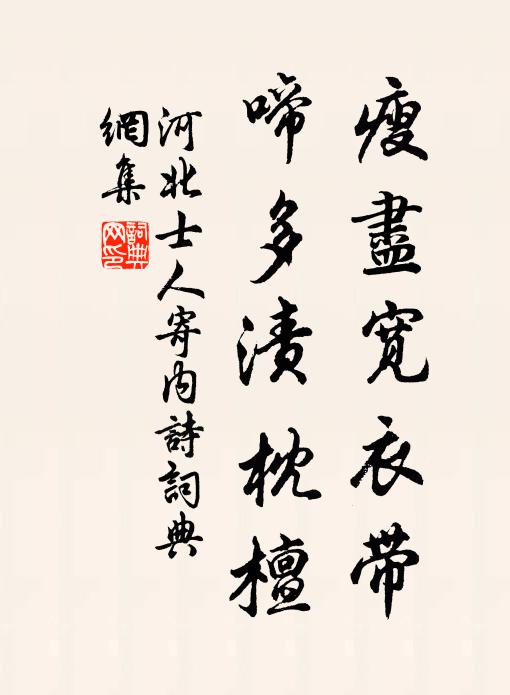 瘦盡寬衣帶
啼多漬枕檀
河北士人寄內詩詞典
網集
詞典
网印